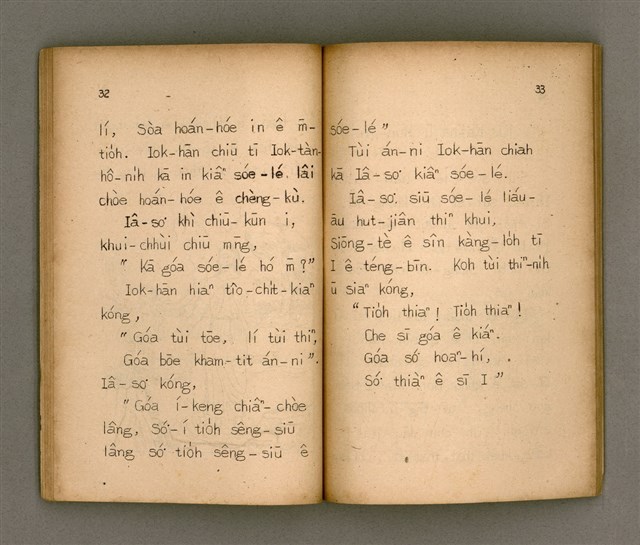 32
lí, Sòa hoán-hóe in ê m̄-
tio̍h. Iok-hān chiū tī Iok-tàn-
hô-ni̍h kā in kiâⁿ sóe-lé. lâi
chòe hoán-hóe ê chèng-kù.
Iâ-so͘ khì chiū-kūn i,
khui-chhùi chiū mn̄g,
" Kā góa sóe-lé hó m̄?"
Iok-hān hiaⁿ tîo-chi̍t-kiaⁿ
kóng,
" Góa tùi tōe, lí tùi thiⁿ,
Góa bōe kham-tit án-ni".
Iâ-so͘ kóng,
" Góa í-keng chiâⁿ-chòe
lâng, Só͘-í tio̍h sêng-siū
lâng só͘ tio̍h sêng-siū ê
33
sóe-lé "
Tùi án-ni Iok-hān chiah
kā Iâ-so͘ kiâⁿ sóe-lé.
Iâ-so͘. siū sóe-lé liáu-
āu hut-jiân thiⁿ khui,
Siōng-tè ê sîn kàng-lo̍h tī
I ê téng-bīn. Koh tùi thiⁿ-ni̍h
ū siaⁿ kóng,
" Tio̍h thiaⁿ! Tio̍h thiaⁿ!
Che sī góa ê kiáⁿ.
Góa só͘ hoaⁿ-hí,
Só͘ thiàⁿ ê sī I "